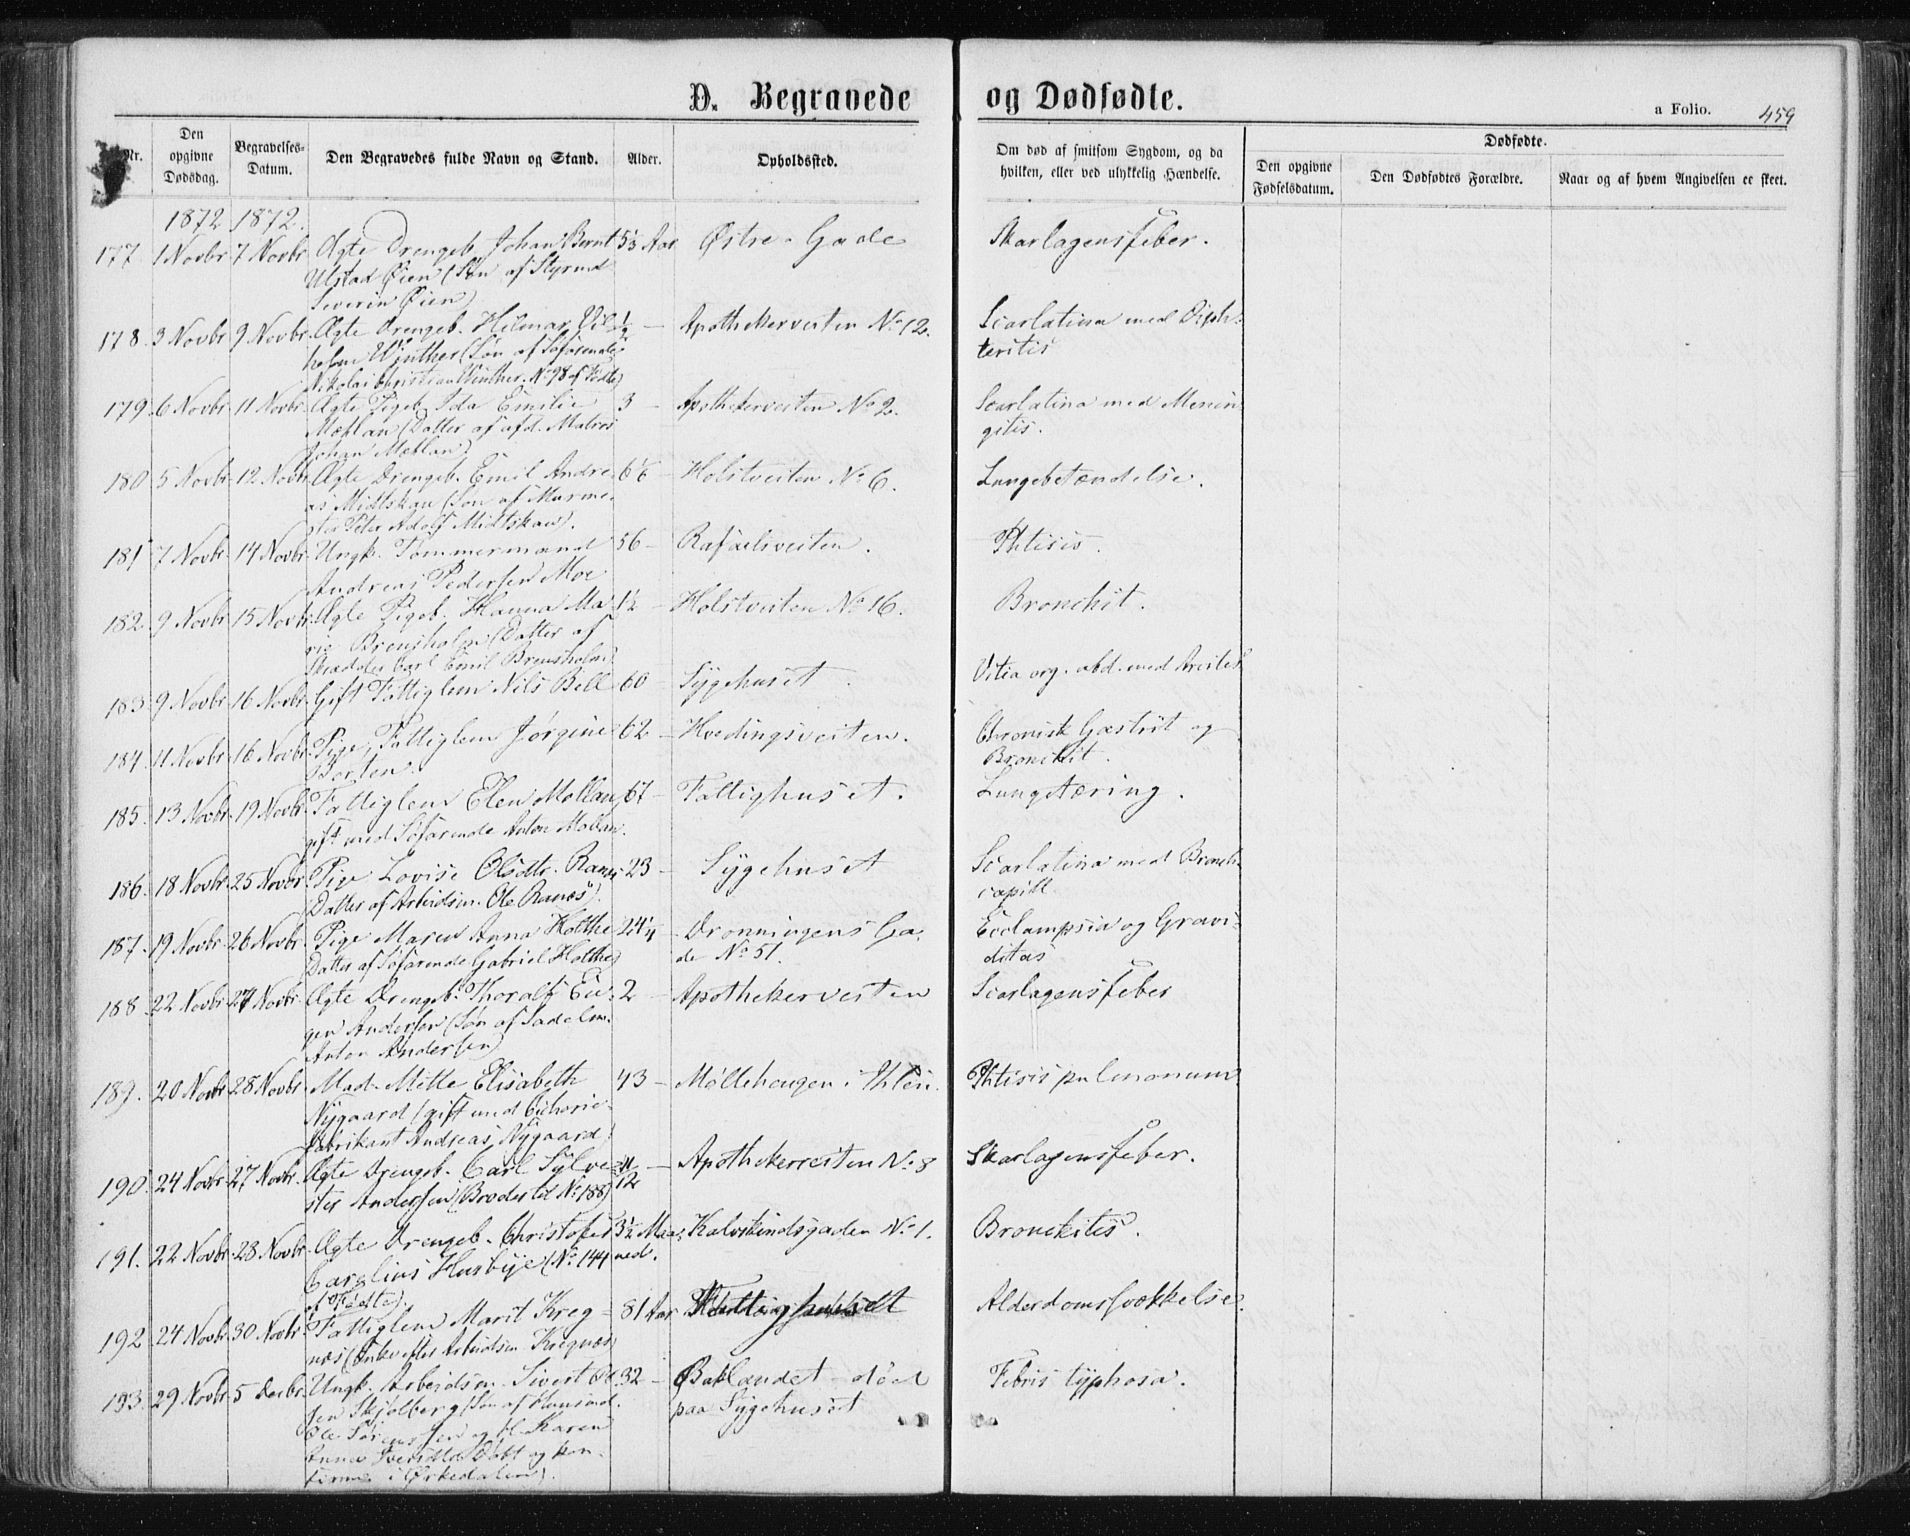 D. Begravede og Dødfødte.
a Folio. 459
Nr.
Den opgivne Dødsdag.
Begravelses-Datum.
Den Begravedes fulde Navn og Stand.
Alder.
Opholdssted.
Om død af smitsom Sygdom, og da hvilken, eller ved ulykkelig Hændelse.
Dødfødte.
Den opgivne Fødselsdatum.
Den Dødfødtes Forældre.
Naar og af hvem Angivelsen er skeet.
1872 1872.
177 1 Novbr 7 Novbr Ægte Drengeb. Johan Bernt 5½ Aar Østre Gade Skarlagensfeber.
Ulstad Øien (Søn af Styrmd
Severin Øien)
178. 3 Novbr 9 Novbr. Ægte Drengeb. Hilmar Vil- ½ — Apothekerveiten No 12. Scarlatina med Diph-
helm Winther (Søn af Søfarende teritis
Nikolai Christian Winther. No 98 af Fødte)
179. 6 Novbr. 11 Novbr. Ægte Pigeb. Ida Emilie 3 — Apothekerveiten No 2. Scarlatina med Menin
Mæhlan (Datter af afd. Matros gitis.
Johan Mæhlan)
180 5 Novbr. 12 Novbr Ægte Drengeb. Emil Andre- 6⅙ — Holstveiten No 6. Lungebetændelse.
as Midtskau (Søn af Murme-
ster Peter Adolf Midtskau).
181 7 Novbr. 14 Novbr. Ungk. Tømmermand 56 — Rafaelsveiten. Phtisis.
Andreas Pedersen Moe
182. 9 Novbr. 15 Novbr. Ægte Pigeb. Hanna Ma 1½ — Holstveiten No 16. Bronchit.
rie Brensholm (Datter af
Skrædder Carl Emil Brensholm)
183. 9 Novbr. 16 Novbr. Gift Fattiglem Nils Bell 60 — Sygehuset. Vitia org. abd. med Ascites
184. 11 Novbr. 16 Novbr. Pige, Fattiglem Jørgine 62 — Hvedingsveiten. Chronisk Gastrit og
Borten. Bronchit.
185. 13 Novbr. 19 Novbr. Fattiglem Elen Mollan, 67 — Fattighuset. Lungetæring.
gift med Søfarende Anton Mollan.
186. 18 Novbr. 25 Novbr Pige Lovise Olsdtr. Ranes 23 — Sygehuset Scarlatina med Bronch.
(Datter af Arbeidsm. Ole Ranes). capill.
187. 19 Novbr. 26 Novbr. Pige Maren Anna Holthe 24¼ — Dronningens Ga- Ecclampsia og Gravi-
Datter af Søfarende Gabriel Holthe) de No 51. ditas
188. 22 Novbr. 27 Novbr. Ægte Drengeb. Thoralf Eu- 2 — Apothekerveiten Scarlagensfeber
gen Andersen (Søn af Sadelm.
Anton Andersen)
189. 20 Novbr. 28 Novbr. Mad. Mette Elisabeth 43 — Møllehaugen i Ihlen. Phtisis pulmonum
Nygaard (gift med Cichorie-
fabrikant Andreas Nygaard)
190. 24 Novbr. 27 Novbr. Ægte Drengeb. Carl Sylve- 11/12 — Apothekerveiten No 8 Skarlagensfeber.
ster Andersen (Broder til No 188)
191. 22 Novbr. 28 Novbr. Ægte Drengeb. Christofer 3½ Maa- Kalvskindsgaden No 1. Bronchitis.
Carelius Husbye (No 144 ned.
af Fødte).
192 24 Novbr. 30 Novbr. Fattiglem Marit Kreg- 81 Aar Fattighuset Alderdomssvækkelse.
næs (Enke efter Arbeidsm. Kregnæs)
193. 29 Novbr. 5 Decbr. Ungk. Arbeidsm. Sivert Ol- 32 — Baklandet – død Febris typhosa.
sen Skjølberg (Søn af Husmd. paa Sygehuset
Ole Sørenssen og H. Karen
Anna Iversdtr Døbt og kon-
firm. i Ørkedalen).